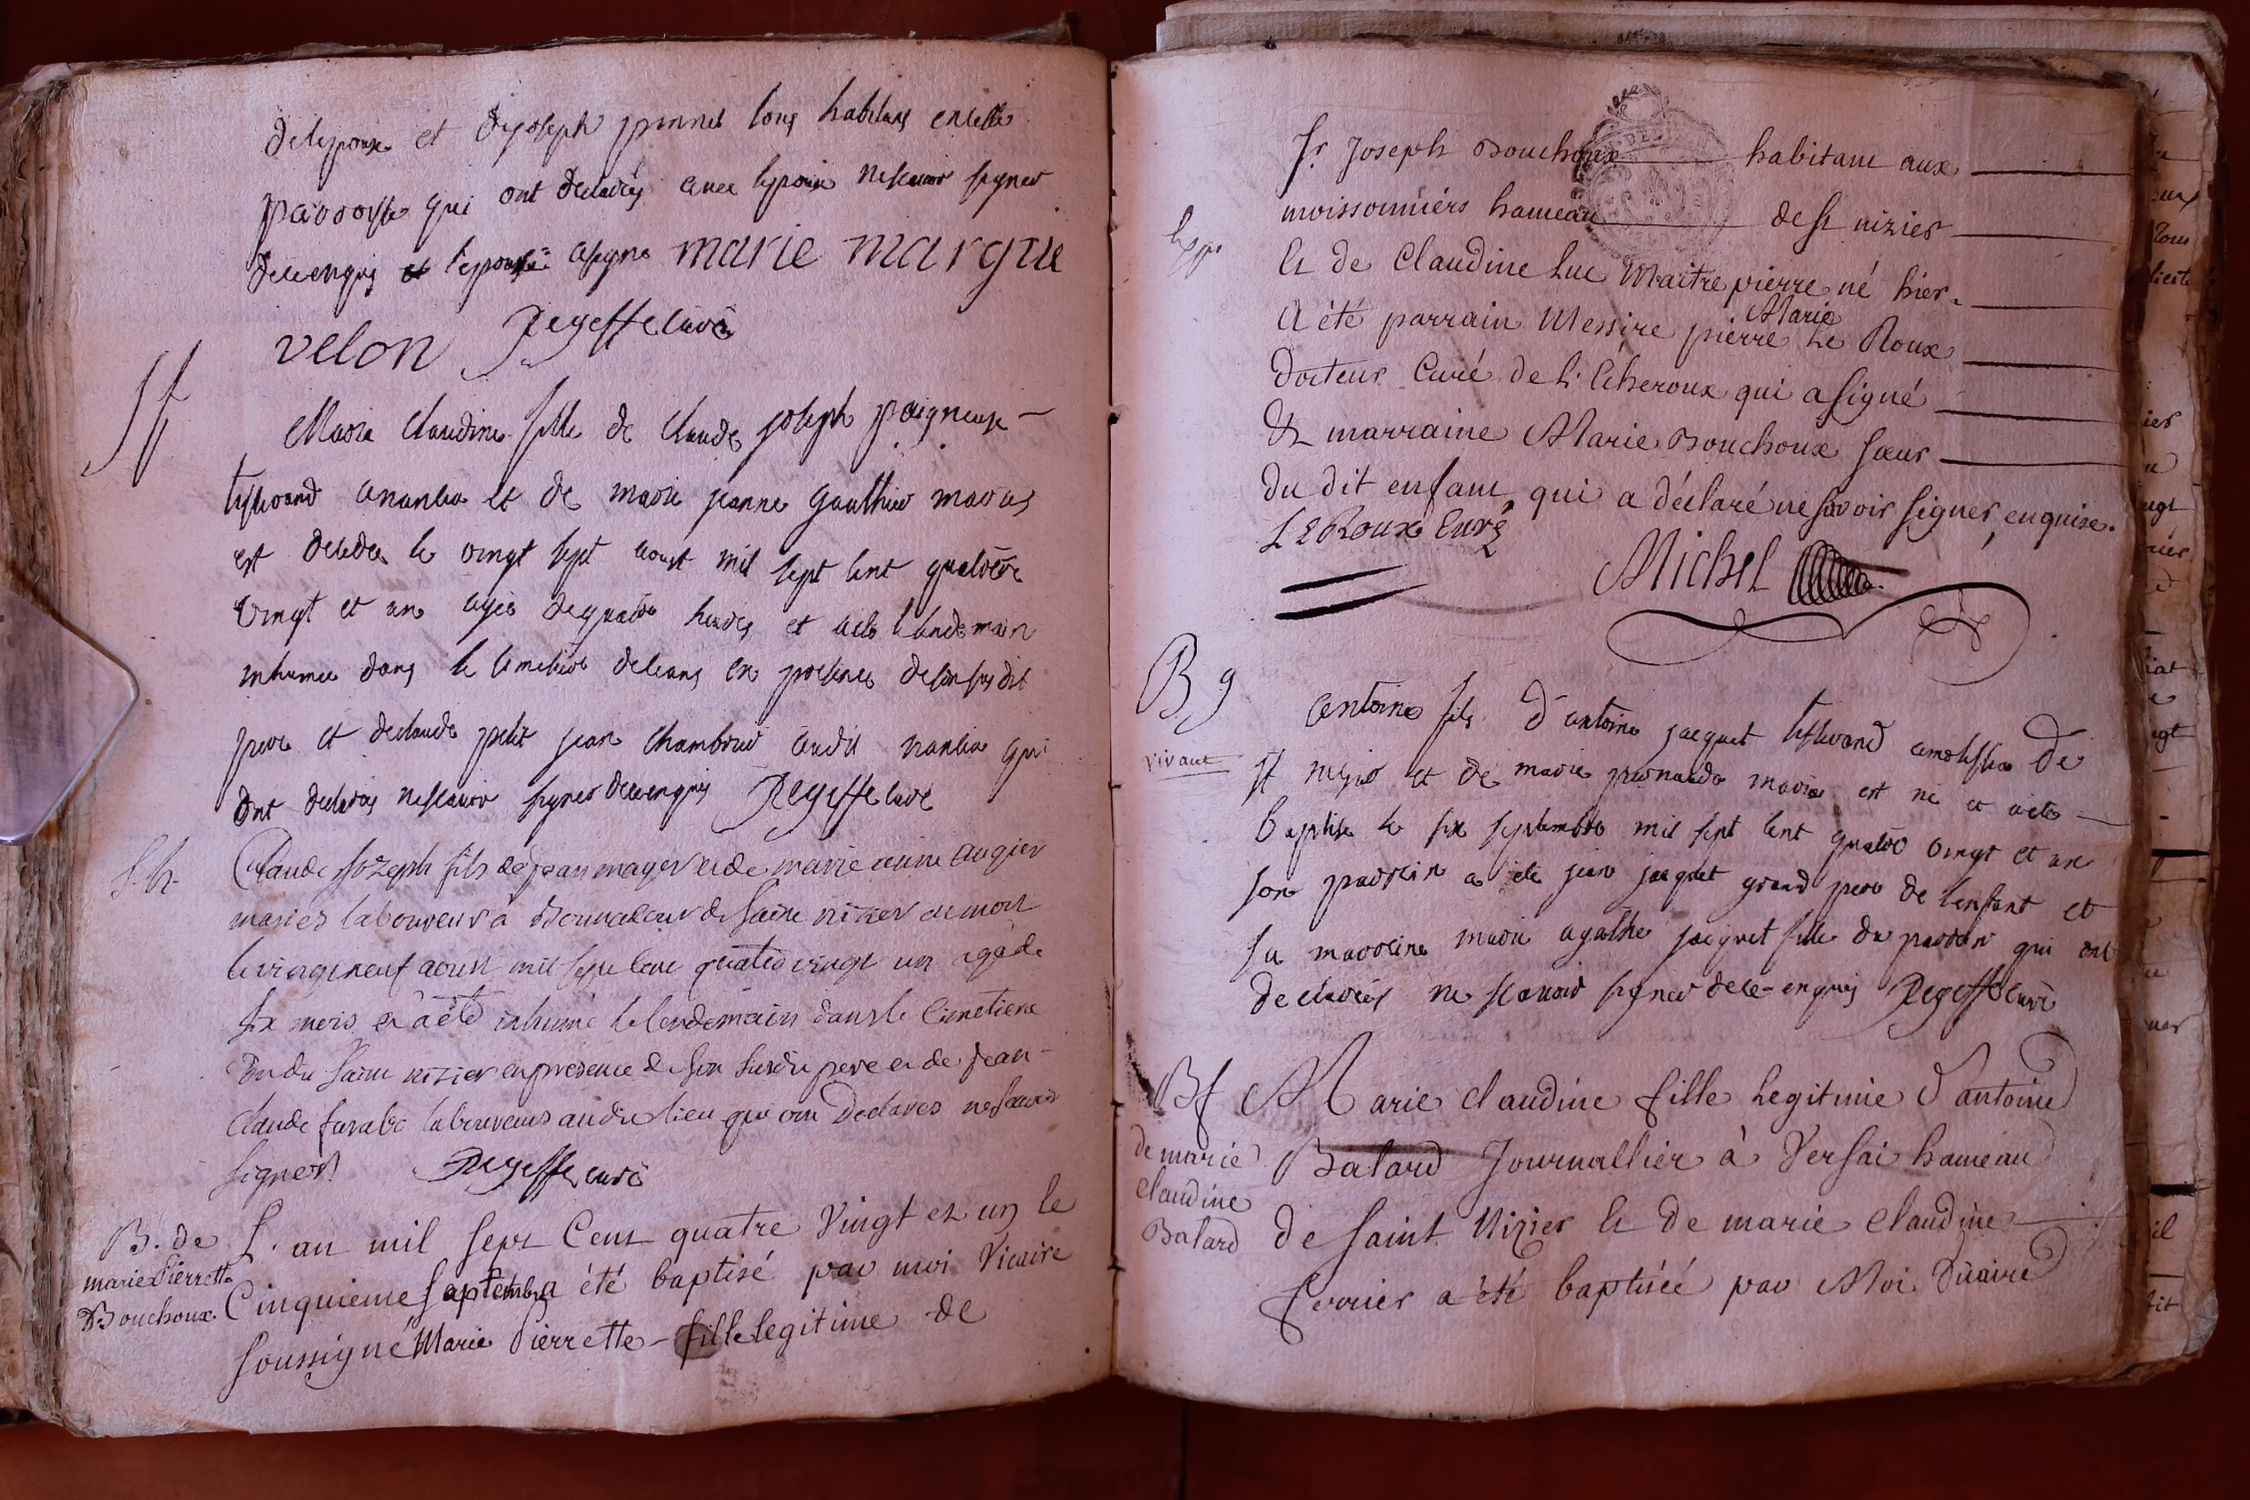 de lepoux et de joseph tous habitans en cette
parroisse qui ont declarés avec lepoux ne scavoir signer
de ce enquis et l'epouse a signé marie margue
velon curé
Sf
Marie Claudine fille de Claude joseph paigneux
tisserand a nantua et de marie jeanne gauthier mariés
est decedée le vingt sept aoust mil sept cent quatre
vingt et un agée de quatre heures et a ete le landemain
inhumée dans le cimetiere de ceans en presence de son susdit
pere et de claude petit jean chambard audit nantua qui
ont declarés ne scavoir signer de ce enquis curé
S. h.
Claude Jozeph fils de jean mayer et de marie anne augier
mariés laboureur a de saint nizier est mort
le vingt neuf aoust mil sept cent quatre vingt un agé de
six mois et a été inhumé le lendemain dans le cimetiere
du dit saint nizier en presence de son susdit pere et de jean
claude laboureur audit lieu qui ont declarés ne scavoir
signer curé
B. de
marie Pierrette
Bouchoux
L'an mil sept Cent quatre Vingt et un le
Cinquieme Septembre a été baptisé par moi Vicaire
soussigné Marie Pierrette fille legitime de
Sr Joseph Bouchoux habitant aux
moissonniers hameau de st nizier
et de Claudine Luc Maitre pierre né hier.
A été parrain Messire pierre Marie Le Roux
Docteur Curé de qui a signé
& marraine Marie Bouchoux soeur
du dit enfant qui a déclaré ne savoir signer, enquise.
LE Roux Curé
Michel
B g
vivant
Antoine fils d'antoine jacquet tisserand de
st nizier et de marie mariés est né et a ete
baptisé le six septembre mil sept cent quatre vingt et un
son parrein a ete jean jacquet grand pere de l'enfant et
sa marreine marie agathe jacquet fille du parrein qui ont
declarés ne scavoir signer de ce enquis curé
Bf
de marie
claudine
Balard
Marie claudine fille legitime d'antoine
Balard Journallier à Versai hameau
de Saint Nizier et de marie Claudine
ferrier a été baptisée par Moi Vicaire